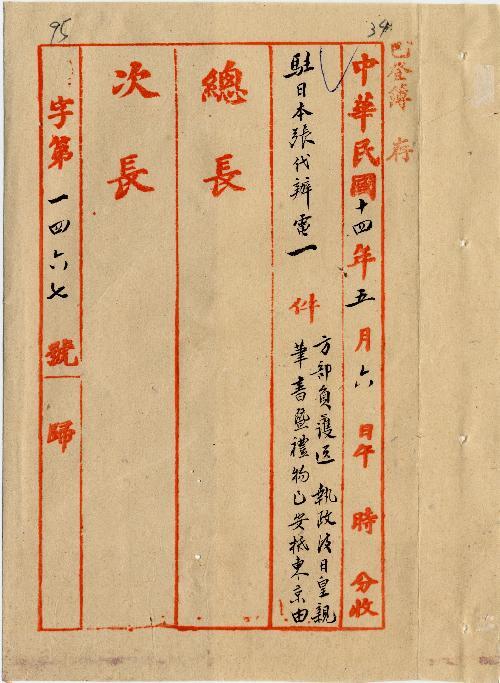 95
34
已登簿 存
中華民國十四年五月六日午 時 分收
駐日本張代辦電一件
方部員護送 執政復日皇親
筆書暨禮物已安抵東京由
總長
次長
字第一四六七號歸